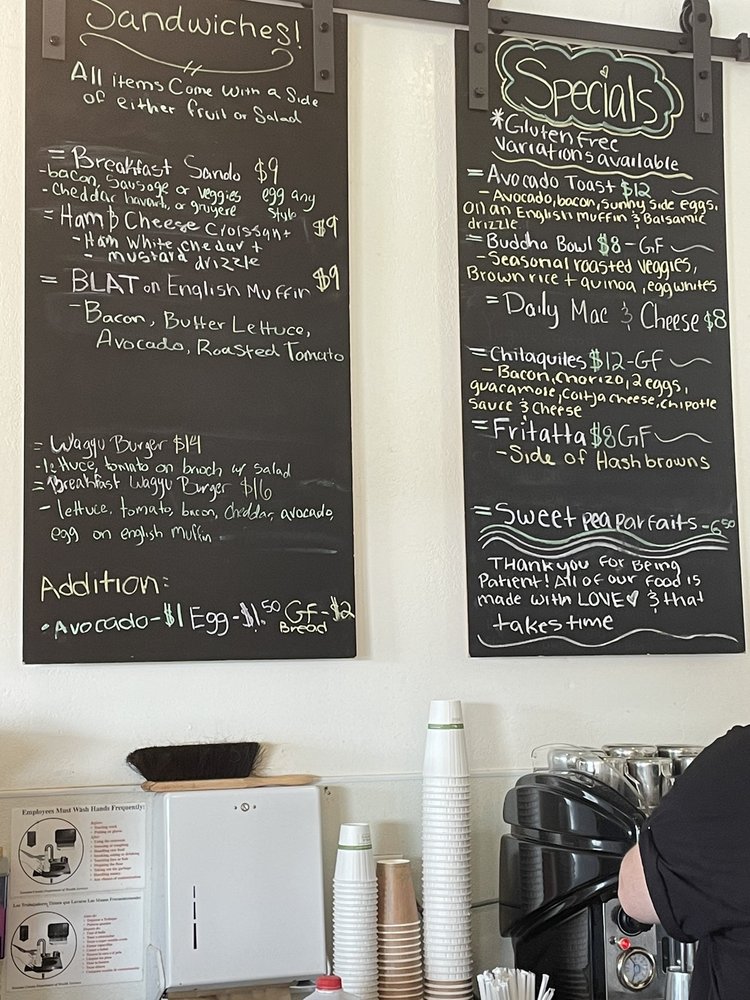 Sandwiches!
All items Come with a Side
of either fruit or Salad
= Breakfast Sando $9
- bacon, Sausage or veggies egg any
- cheddar havarti, or gruyere style
= Ham & Cheese Croissant $9
- Ham white chedar +
- mustard drizzle
= BLAT on English Muffin $9
- Bacon, Butter Lettuce,
Avocado, Roasted Tomato
= Wagyu Burger $14
- lettuce, tomato on brioch w/ salad
= Breakfast Wagyu Burger $16
- lettuce, tomato, bacon, cheddar, avocado,
egg on english muffin
Addition:
• Avocado - $1 Egg - $1.50 GF - $2
Bread
Specials
*Gluten Free
Variations available
= Avocado Toast $12
- Avocado, bacon, sunny side eggs,
On an English muffin & Balsamic
drizzle
= Buddha Bowl $8 - GF
- Seasonal roasted veggies,
Brown rice + quinoa, egg whites
= Daily Mac & Cheese $8
= Chilaquiles $12 - GF
- Bacon, chorizo, 2 eggs,
guacamole, Coitja cheese, chipotle
sauce & cheese
= Fritatta $8 GF
- Side of Hashbrowns
= Sweet pea parfaits - 6.50
THANK you for Being
Patient! All of our food is
made with LOVE & that
takes time
Employees Must Wash Hands Frequently: